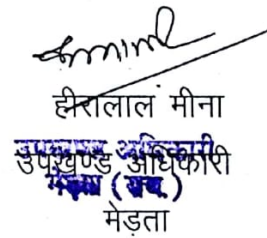 हीरालाल मीना
उपखण्ड अधिकारी
उपखण्ड अधिकारी
मेड़ता (राज.)
मेड़ता